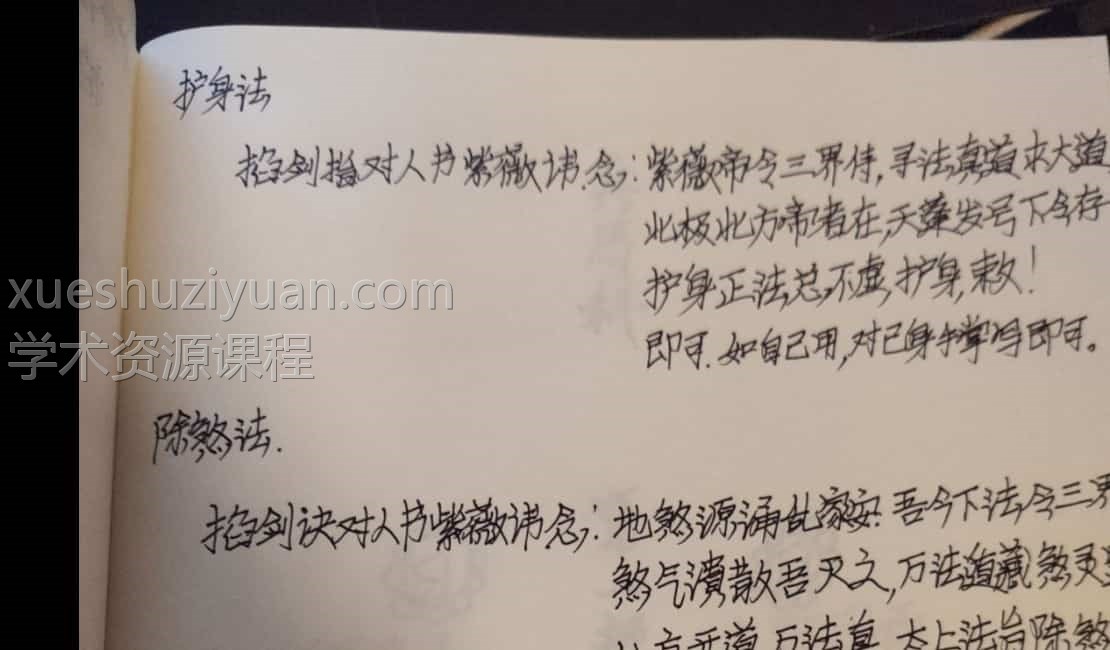 护身法
掐剑指对人书紫薇讳.念:紫薇帝令三界侍,寻法真道求大道
北极北方帝者在,天蓬发号下令存
护身正法总不虚,护身,敕!
即可.如自己用,对己身手掌书即可。
xueshuziyuan.com
学术资源课程
除煞法.
掐剑诀对人书紫薇讳念:地煞源涌乱家安.吾今下法令三界
煞气溃散吾灭之,万法道藏煞灵
方开道,万法真,太上法旨除煞